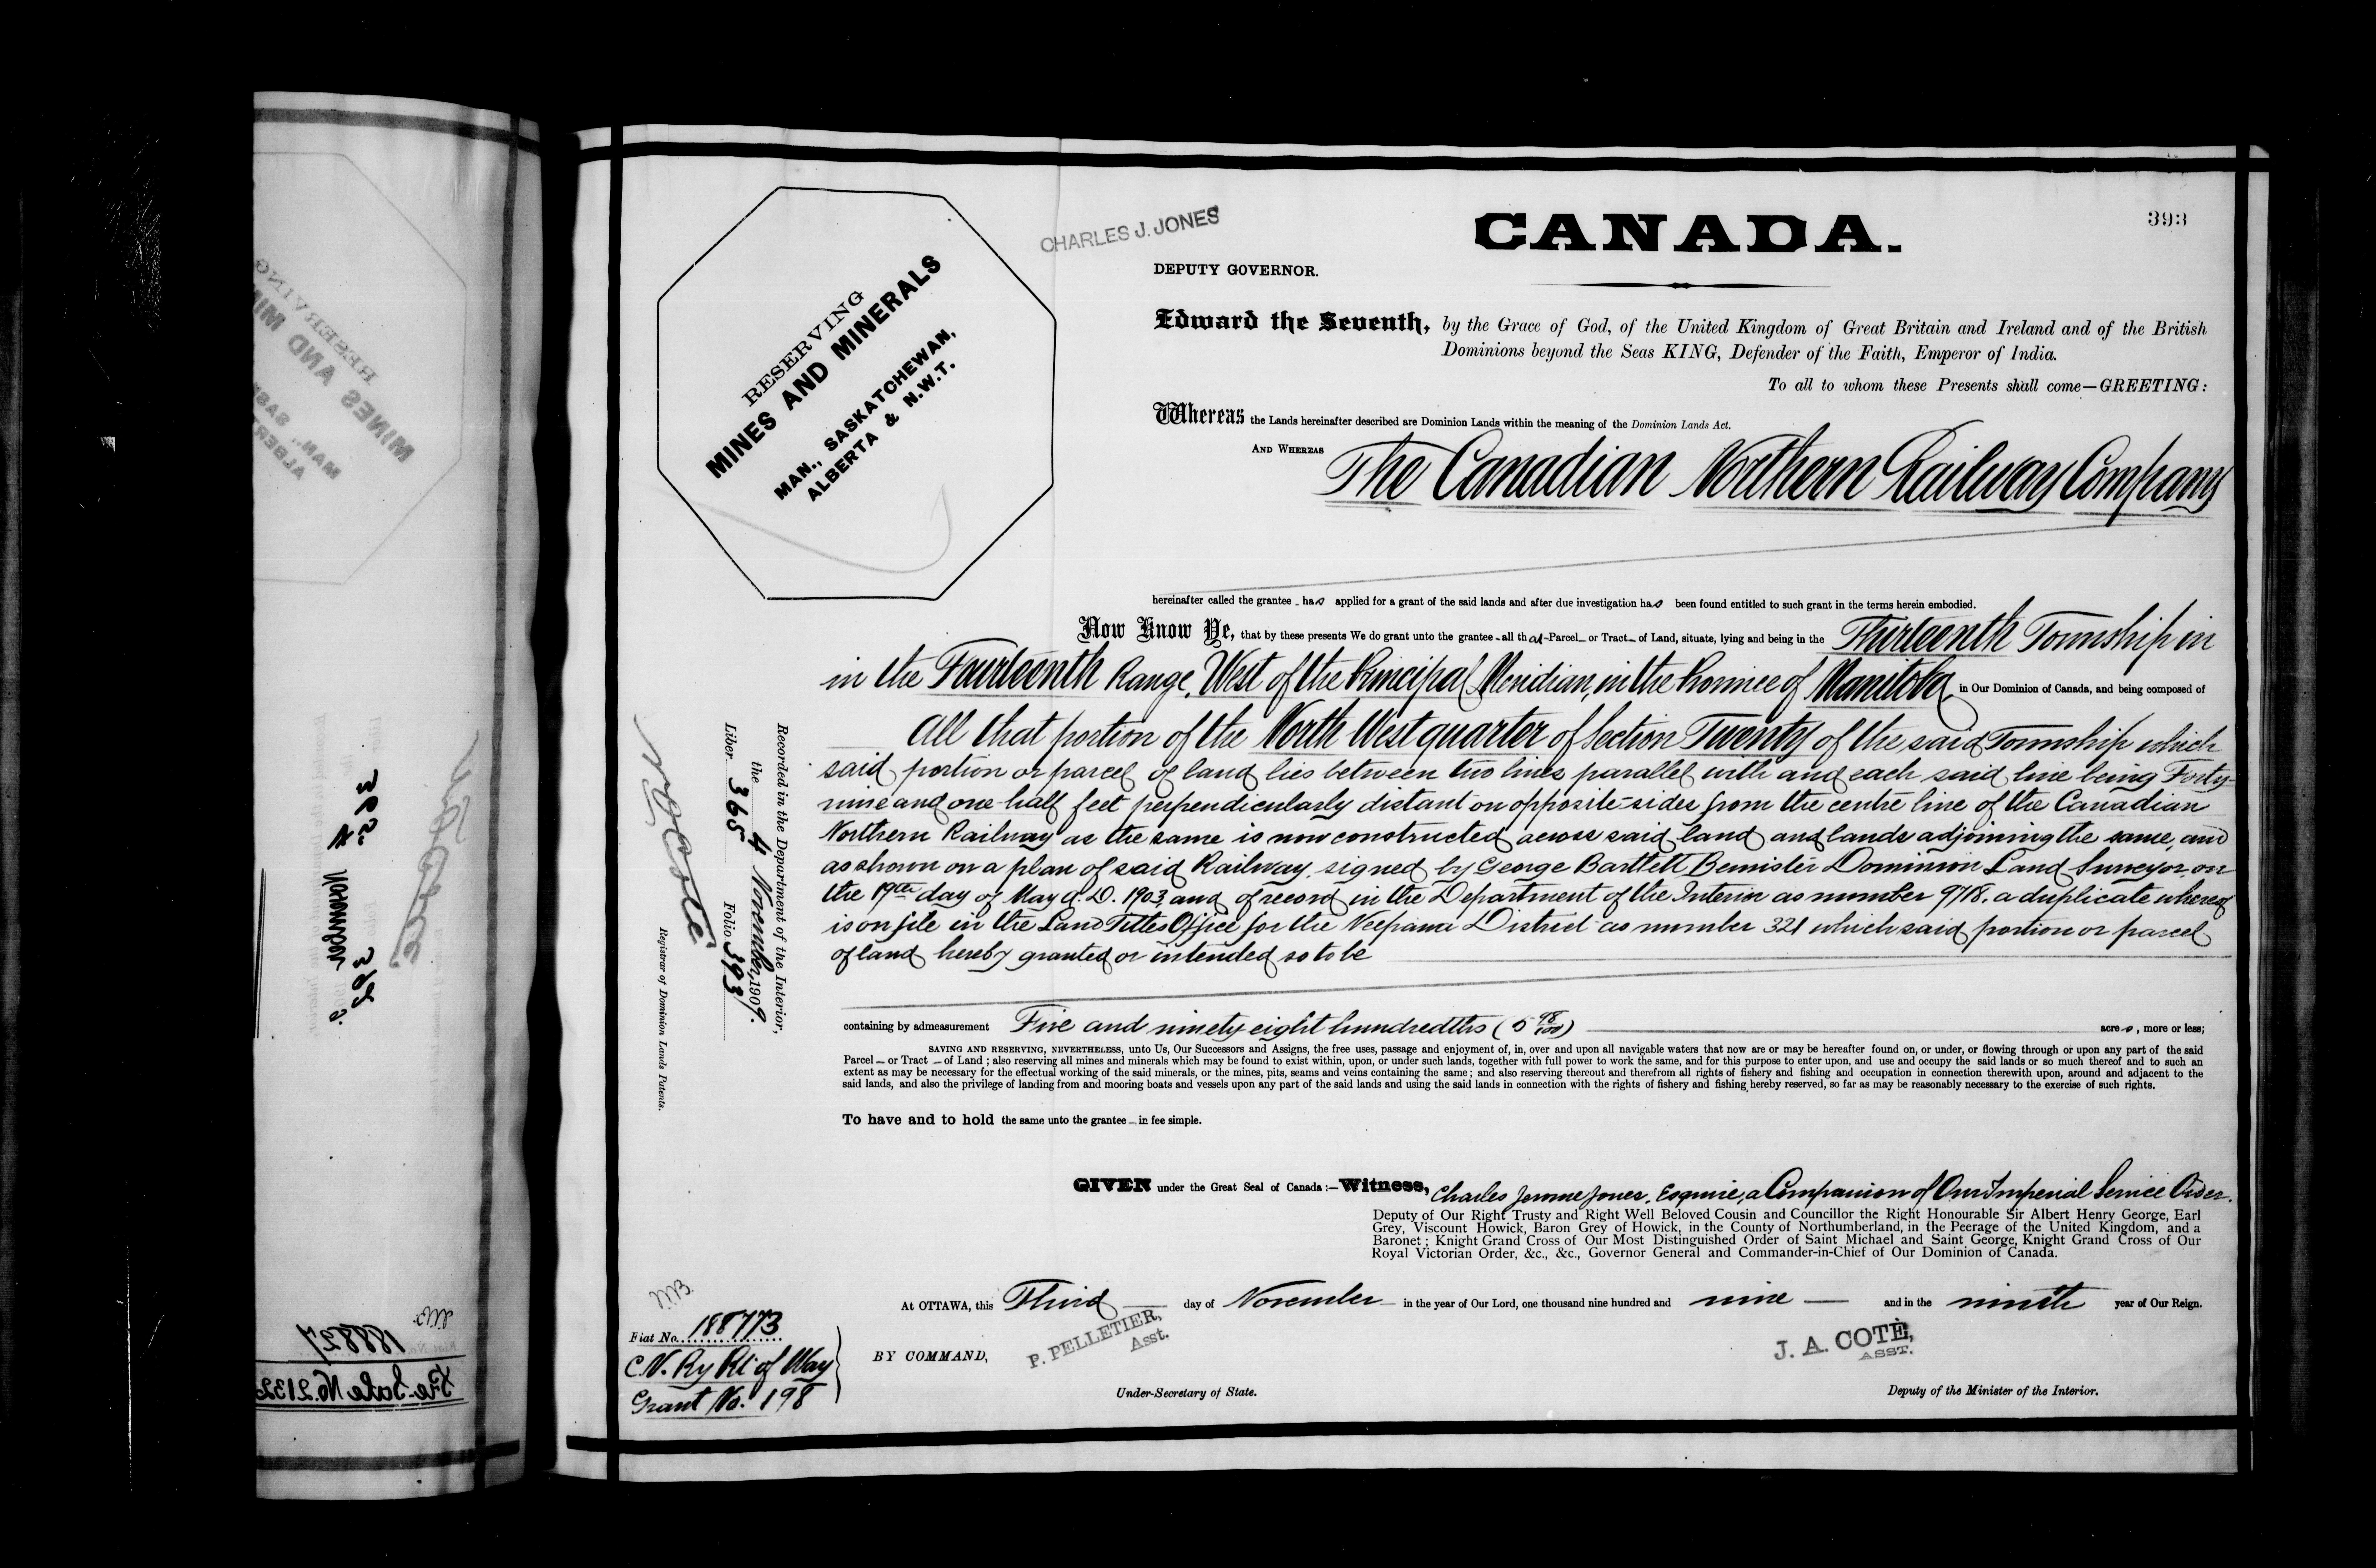 393
CHARLES J. JONES
CANADA.
DEPUTY GOVERNOR.
RESERVING
MINES AND MINERALS
MAN., SASKATCHEWAN,
ALBERTA & N.W.T.
Edward the Seventh, by the Grace of God, of the United Kingdom of Great Britain and Ireland and of the British
Dominions beyond the Seas KING, Defender of the Faith, Emperor of India.
To all to whom these Presents shall come—GREETING:
Whereas the Lands hereinafter described are Dominion Lands within the meaning of the Dominion Lands Act.
AND WHEREAS The Canadian Northern Railway Company
hereinafter called the grantee has applied for a grant of the said lands and after due investigation has been found entitled to such grant in the terms herein embodied.
Now Know Ye, that by these presents We do grant unto the grantee all that Parcel or Tract of Land, situate, lying and being in the Thirteenth Township in
in the Fourteenth Range, West of the Principal Meridian, in the Province of Manitoba in Our Dominion of Canada, and being composed of
All that portion of the North West quarter of Section Twenty of the said Township which
said portion or parcel of land lies between two lines parallel with and each said line being Forty-
nine and one half feet perpendicularly distant on opposite sides from the centre line of the Canadian
Northern Railway as the same is now constructed across said land and lands adjoining the same, and
as shown on a plan of said Railway, signed by George Bartlett Bemister Dominion Land Surveyor, on
the 19th day of May A.D. 1903, and of record in the Department of the Interior as number 9718, a duplicate whereof
is on file in the Land Titles Office for the Neepawa District as number 321 which said portion or parcel
of land hereby granted or intended so to be
containing by admeasurement Five and ninety eight hundredths (5 98/100) acres, more or less;
SAVING AND RESERVING, NEVERTHELESS, unto Us, Our Successors and Assigns, the free uses, passage and enjoyment of, in, over and upon all navigable waters that now are or may be hereafter found on, or under, or flowing through or upon any part of the said
Parcel or Tract of Land; also reserving all mines and minerals which may be found to exist within, upon, or under such lands, together with full power to work the same, and for this purpose to enter upon, and use and occupy the said lands or so much thereof and to such an
extent as may be necessary for the effectual working of the said minerals, or the mines, pits, seams and veins containing the same; and also reserving thereout and therefrom all rights of fishery and fishing and occupation in connection therewith upon, around and adjacent to the
said lands, and also the privilege of landing from and mooring boats and vessels upon any part of the said lands and using the said lands in connection with the rights of fishery and fishing hereby reserved, so far as may be reasonably necessary to the exercise of such rights.
To have and to hold the same unto the grantee in fee simple.
GIVEN under the Great Seal of Canada:—Witness, Charles Jerome Jones, Esquire, a Companion of Our Imperial Service Order.
Deputy of Our Right Trusty and Right Well Beloved Cousin and Councillor the Right Honourable Sir Albert Henry George, Earl
Grey, Viscount Howick, Baron Grey of Howick, in the County of Northumberland, in the Peerage of the United Kingdom, and a
Baronet; Knight Grand Cross of Our Most Distinguished Order of Saint Michael and Saint George, Knight Grand Cross of Our
Royal Victorian Order, &c., &c., Governor General and Commander-in-Chief of Our Dominion of Canada.
At OTTAWA, this Third day of November in the year of Our Lord, one thousand nine hundred and nine and in the ninth year of Our Reign.
BY COMMAND,
P. PELLETIER,
Asst.
Under-Secretary of State.
J. A. COTÉ,
ASST.
Deputy of the Minister of the Interior.
Recorded in the Department of the Interior,
the 4 November, 1909.
Liber 365 Folio 393
N O Coté
Registrar of Dominion Lands Patents.
Fiat No. 188773
C.N. Ry Rt of Way
Grant No. 198